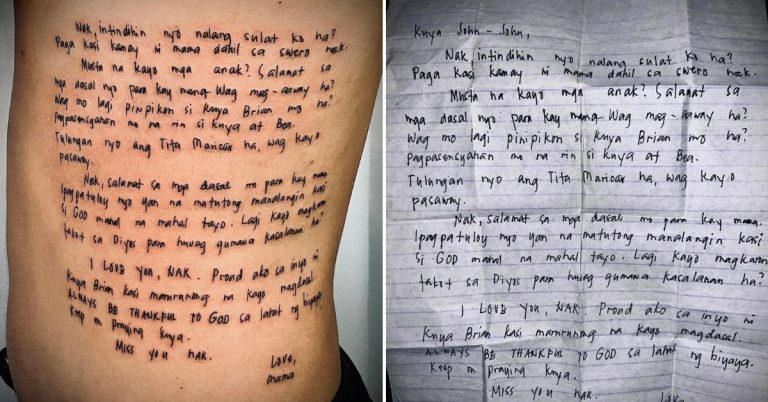 Nak, intindihin nyo nalang sulat ko ha?
Paga kasi kamay ni mama dahil sa swero nak.
Musta na kayo mga anak? Salamat sa
mga dasal nyo para kay mama. Wag mag-aaway ha?
Wag mo lagi pinipikon si Kuya Brian mo ha?
Pagpasensyahan mo na rin si kuya at Bea.
Tulungan nyo ang Tita Maricar ha, wag kayo
pasaway.
Nak, salamat sa mga dasal mo para kay mama.
Ipagpatuloy nyo yan na matutong manalangin kasi
si GOD mahal na mahal tayo. Lagi kayo magkaron
takot sa Diyos para huwag gumawa kasalanan ha?
I LOVE YOU, NAK. Proud ako sa inyo ni
Kuya Brian kasi marurunong na kayo magdasal.
ALWAYS BE THANKFUL TO GOD sa lahat ng biyaya.
Keep on praying kuya.
Miss you nak.
Love,
mama
Kuya John-John,
Nak, intindihin nyo nalang sulat ko ha?
Paga kasi kamay ni mama dahil sa swero nak.
Musta na kayo mga anak? Salamat sa
mga dasal nyo para kay mama. Wag mag-aaway ha?
Wag mo lagi pinipikon si Kuya Brian mo ha?
Pagpasensyahan mo na rin si kuya at Bea.
Tulungan nyo ang Tita Maricar ha, wag kayo
pasaway.
Nak, salamat sa mga dasal mo para kay mama.
Ipagpatuloy nyo yan na matutong manalangin kasi
si GOD mahal na mahal tayo. Lagi kayo magkaron
takot sa Diyos para huwag gumawa kasalanan ha?
I LOVE YOU, NAK. Proud ako sa inyo ni
Kuya Brian kasi marurunong na kayo magdasal.
ALWAYS BE THANKFUL TO GOD sa lahat ng biyaya.
Keep on praying kuya.
Miss you nak.
Love,